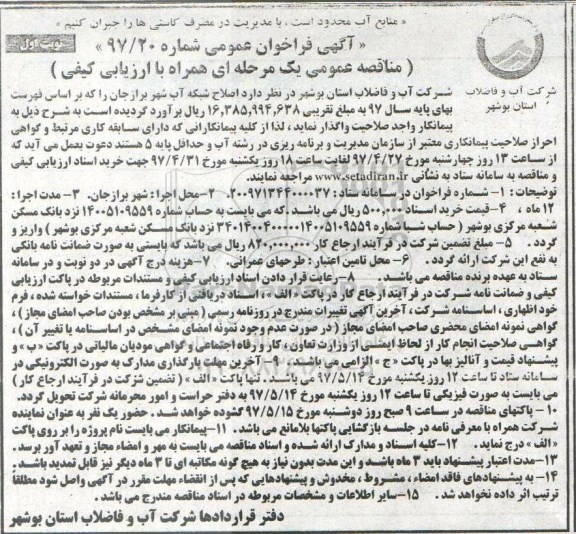 « منابع آب محدود است ، با مدیریت در مصرف کاستی ها را جبران کنیم »
نوبت اول
« آگهی فراخوان عمومی شماره ۹۷/۲۰ »
( مناقصه عمومی یک مرحله ای همراه با ارزیابی کیفی )
شرکت آب و فاضلاب
استان بوشهر
شرکت آب و فاضلاب استان بوشهر در نظر دارد اصلاح شبکه آب شهر برازجان را که بر اساس فهرست
بهای پایه سال ۹۷ به مبلغ تقریبی ۱۶,۳۸۵,۹۹۴,۶۳۸ ریال برآورد گردیده است به شرح ذیل به
پیمانکار واجد صلاحیت واگذار نماید ، لذا از کلیه پیمانکارانی که دارای سابقه کاری مرتبط و گواهی
احراز صلاحیت پیمانکاری معتبر از سازمان مدیریت و برنامه ریزی در رشته آب و حداقل پایه ۵ هستند دعوت بعمل می آید که
از ساعت ۱۳ روز چهارشنبه مورخ ۹۷/۴/۲۷ لغایت ساعت ۱۸ روز یکشنبه مورخ ۹۷/۴/۳۱ جهت خرید اسناد ارزیابی کیفی
و مناقصه به سامانه ستاد به نشانی www.setadiran.ir مراجعه نمایند.
توضیحات : ۱- شماره فراخوان در سامانه ستاد : ۲۰۰۹۷۱۳۴۴۰۰۰۰۳۷. ۲-محل اجرا: شهر برازجان. ۳-مدت اجرا:
۱۲ ماه ، ۴- قیمت خرید اسناد ۵۰۰,۰۰۰ ریال می باشد . که می بایست به حساب شماره ۱۴۰۰۵۱۰۹۵۵۹ نزد بانک مسکن
شعبه مرکزی بوشهر ( حساب شبا شماره ۳۴۰۱۴۰۰۴۰۰۰۰۰۱۴۰۰۵۱۰۹۵۵۹ نزد بانک مسکن شعبه مرکزی بوشهر ) واریز و
گردد. ۵- مبلغ تضمین شرکت در فرآیند ارجاع کار ۸۲۰,۰۰۰,۰۰۰ ریال می باشد که بایستی به صورت ضمانت نامه بانکی
به نفع این شرکت ارائه گردد. ۶- محل تامین اعتبار : طرحهای عمرانی. ۷- هزینه درج آگهی در دو نوبت و در سامانه
ستاد به عهده برنده مناقصه می باشد. ۸-رعایت قرار دادن اسناد ارزیابی کیفی و مستندات مربوطه در پاکت ارزیابی
کیفی و ضمانت نامه شرکت در فرآیند ارجاع کار در پاکت « الف » ، اسناد دریافتی از کارفرما ، مستندات خواسته شده ، فرم
خود اظهاری ، اساسنامه شرکت ، آخرین آگهی تغییرات مندرج در روزنامه رسمی ( مبنی بر مشخص بودن صاحب امضای مجاز ) ،
گواهی نمونه امضای محضری صاحب امضای مجاز ( در صورت عدم وجود نمونه امضای مشخص در اساسنامه یا تغییر آن ) ،
گواهی صلاحیت انجام کار از لحاظ ایمنی از وزارت تعاون ، کار و رفاه اجتماعی و گواهی مودیان مالیاتی در پاکت « ب » و
پیشنهاد قیمت و آنالیز بها در پاکت « ج » الزامی می باشد. ۹- آخرین مهلت بارگذاری مدارک به صورت الکترونیکی در
سامانه ستاد تا ساعت ۱۲ روز یکشنبه مورخ ۹۷/۵/۱۴ می باشد. تنها پاکت « الف » ( تضمین شرکت در فرآیند ارجاع کار )
می بایست به صورت فیزیکی تا ساعت ۱۲ روز یکشنبه مورخ ۹۷/۵/۱۴ به دفتر حراست و امور محرمانه شرکت تحویل گردد.
۱۰- پاکتهای مناقصه در ساعت ۹ صبح روز دوشنبه مورخ ۹۷/۵/۱۵ گشوده خواهد شد. حضور یک نفر به عنوان نماینده
شرکت همراه با معرفی نامه در جلسه بازگشایی پاکتها بلامانع می باشد. ۱۱-پیمانکار می بایست نام پروژه را بر روی پاکت
« الف » درج نماید. ۱۲-کلیه اسناد و مدارک ارائه شده و اسناد مناقصه می بایست به مهر و امضاء مجاز و تعهد آور برسد.
۱۳-مدت اعتبار پیشنهاد باید ۳ ماه باشد و این مدت بدون نیاز به هیچ گونه مکاتبه ای تا ۳ ماه دیگر نیز قابل تمدید باشد.
۱۴- به پیشنهادهای فاقد امضاء ، مشروط ، مخدوش و پیشنهادهایی که پس از انقضاء مهلت مقرر در آگهی واصل شود مطلقاً
ترتیب اثر داده نخواهد شد. ۱۵-سایر اطلاعات و مشخصات مربوطه در اسناد مناقصه مندرج می باشد.
دفتر قراردادها شرکت آب و فاضلاب استان بوشهر